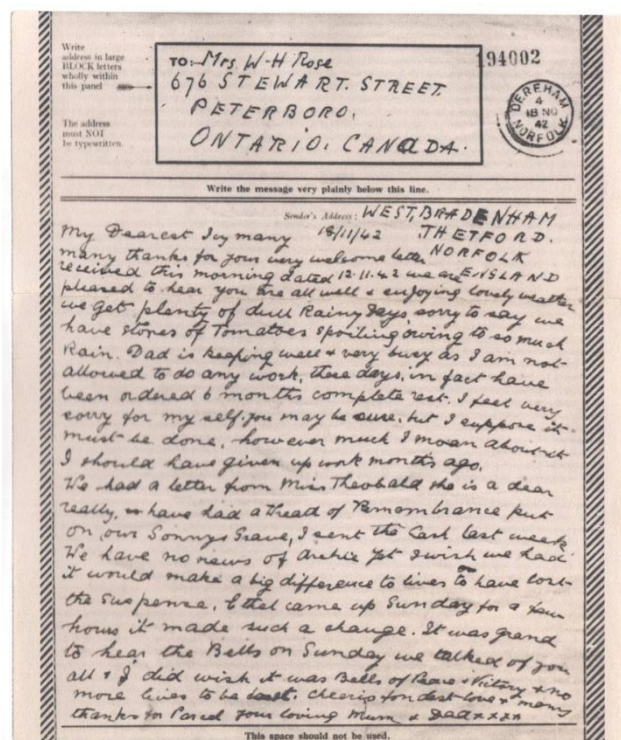 Write
address in large
BLOCK letters
wholly within
this panel
The address
must NOT
be typewritten.
TO: Mrs. W-H Rose
676 STEWART. STREET.
PETERBORO.
ONTARIO. CANADA.
194002
DEREHAM
4
18 NO
42
NORFOLK
Write the message very plainly below this line.
Sender's Address: WEST, BRADENHAM
My Dearest Ivy many 18/11/42 THETFORD.
many thanks for your very welcome letter NORFOLK
received this morning dated 12.11.42 we are ENGLAND
pleased to hear you are all well & enjoying lovely weather
we get plenty of dull Rainy Days sorry to say we
have stones of Tomatoes spoiling owing to so much
Rain. Dad is keeping well & very busy as I am not
allowed to do any work, these days, in fact have
been ordered 6 months complete rest. I feel very
sorry for my self, you may be sure, but I suppose it
must be done, however much I moan about it
I should have given up work months ago.
We had a letter from Miss Theobald she is a dear
really, have had a Wreath of Remembrance put
on our Sonnys Grave, I sent the Cash last week
We have no news of Archie yet I wish we had
it would make a big difference to lives to have lost
the Suspense. Ethel came up Sunday for a few
hours it made such a change. It was grand
to hear the Bells on Sunday we talked of you
all & I did wish it was Bells of Peace & Victory & no
more lives to be lost. cheerio fondest love & many
thanks for Parcel your loving Mum & Dad xxxx
This space should not be used.